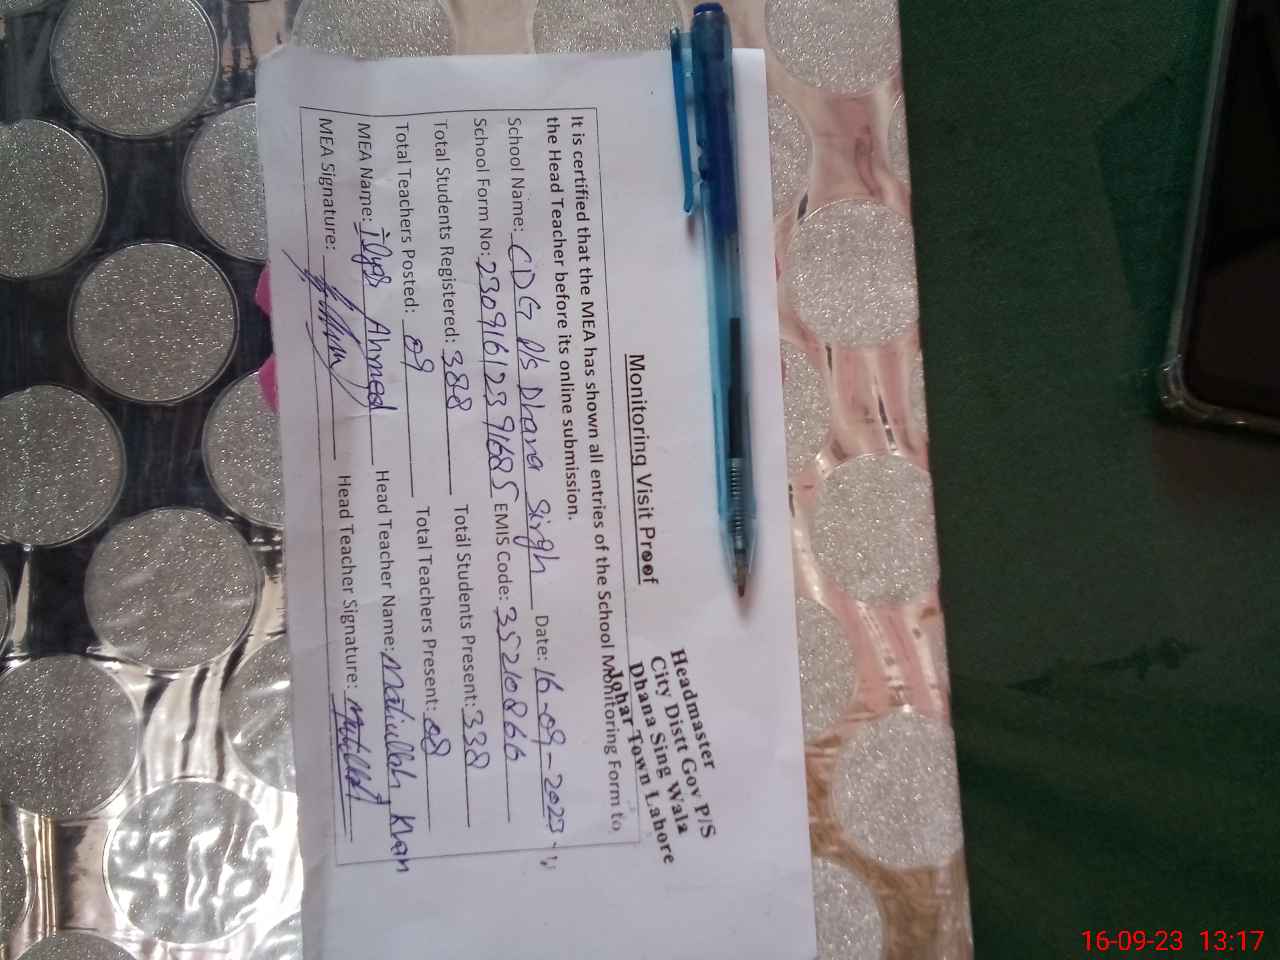 Headmaster
City Distt Gov P/S
Dhana Sing Wala
Johar Town Lahore
Monitoring Visit Proof
It is certified that the MEA has shown all entries of the School Monitoring Form to
the Head Teacher before its online submission.
School Name: CDG P/S Dhana Singh Date: 16-09-2023
School Form No: 23091612391685 EMIS Code: 35210866
Total Students Registered: 388 Total Students Present: 338
Total Teachers Posted: 09 Total Teachers Present: 08
MEA Name: ilyas Ahmed Head Teacher Name: Matiullah Khan
MEA Signature: Head Teacher Signature: 
16-09-23 13:17